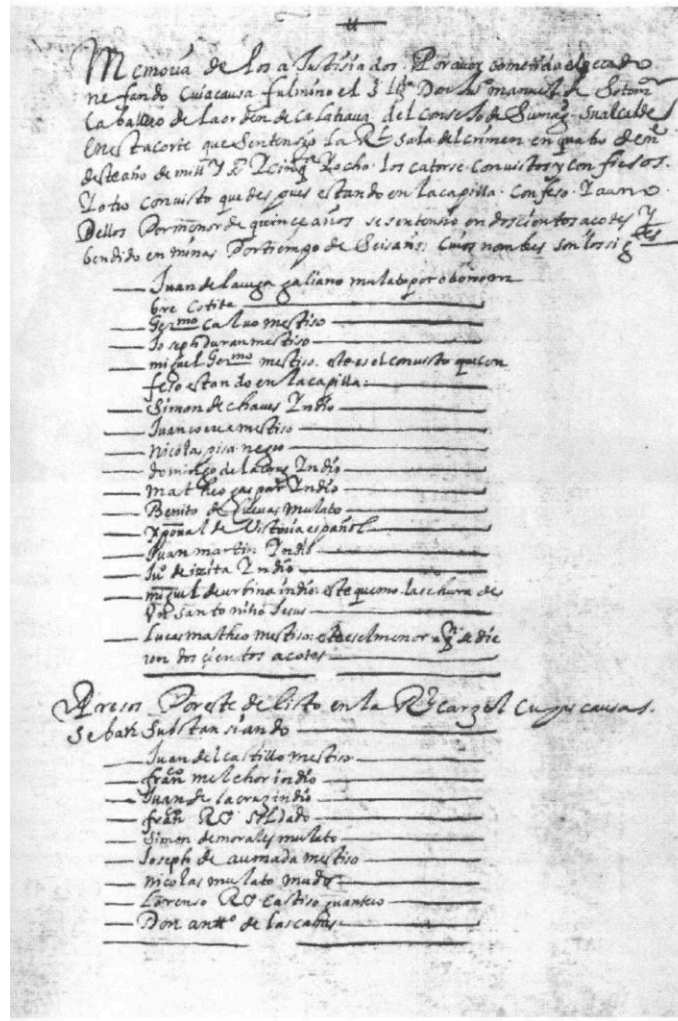 Memoria de los ajustisiados Por aver cometido el peccado
nefando Cuia causa fulmino el S. Lizdo Don Ju° manuel de Sotomr
Caballero de la orden de Calatraua del consejo de Su mag. Su alcalde
en esta corte que Sentensio la Rl Sala del crimen en quatro de
deste año de mill y Sos cinqta y ocho. Los catorse convistos y confiesos.
Y otro convisto que despues estando en la capilla. Confeso. Y a uno
Dellos Por menor de quince años se sentensio en dosientos acotes Y
bendido en minas Por tiempo de Seis años. Cuios nombres son los sigtes
Juan de la uega galiano mulato por otro nom
bre Cotita
Germo caluo mestiso
Joseph duran mestiso
miguel Germo mestiso. este es el convisto que con
feso estando en la capilla
Simon de chaues Indio
Juan correa mestiso
nicolas pisa negro
domingo de la crus Indio
matheo gaspar Indio
Benito de Cuebas Mulato
xpoual de Vistoria español
Juan martin Indio
Ju° de izita Indio
miguel de urbina indio. este quemo la echura de
Vn santo niño Jesus
Lucas matheo mestiso: este es el menor a qn se die
ron dos çientos acotes
Presos Por este delito en la Rl Carzel Cuyas causas.
Se ban Substansiando
Juan del castillo mestiso
franco melchor indio
Juan de la crus indio
franco Ro Soldado
Simon de morales mulato
Joseph de aumada mestiso
nicolas mulato mudo
Lorenso Ro castiso guantero
Don antt° de las cabas